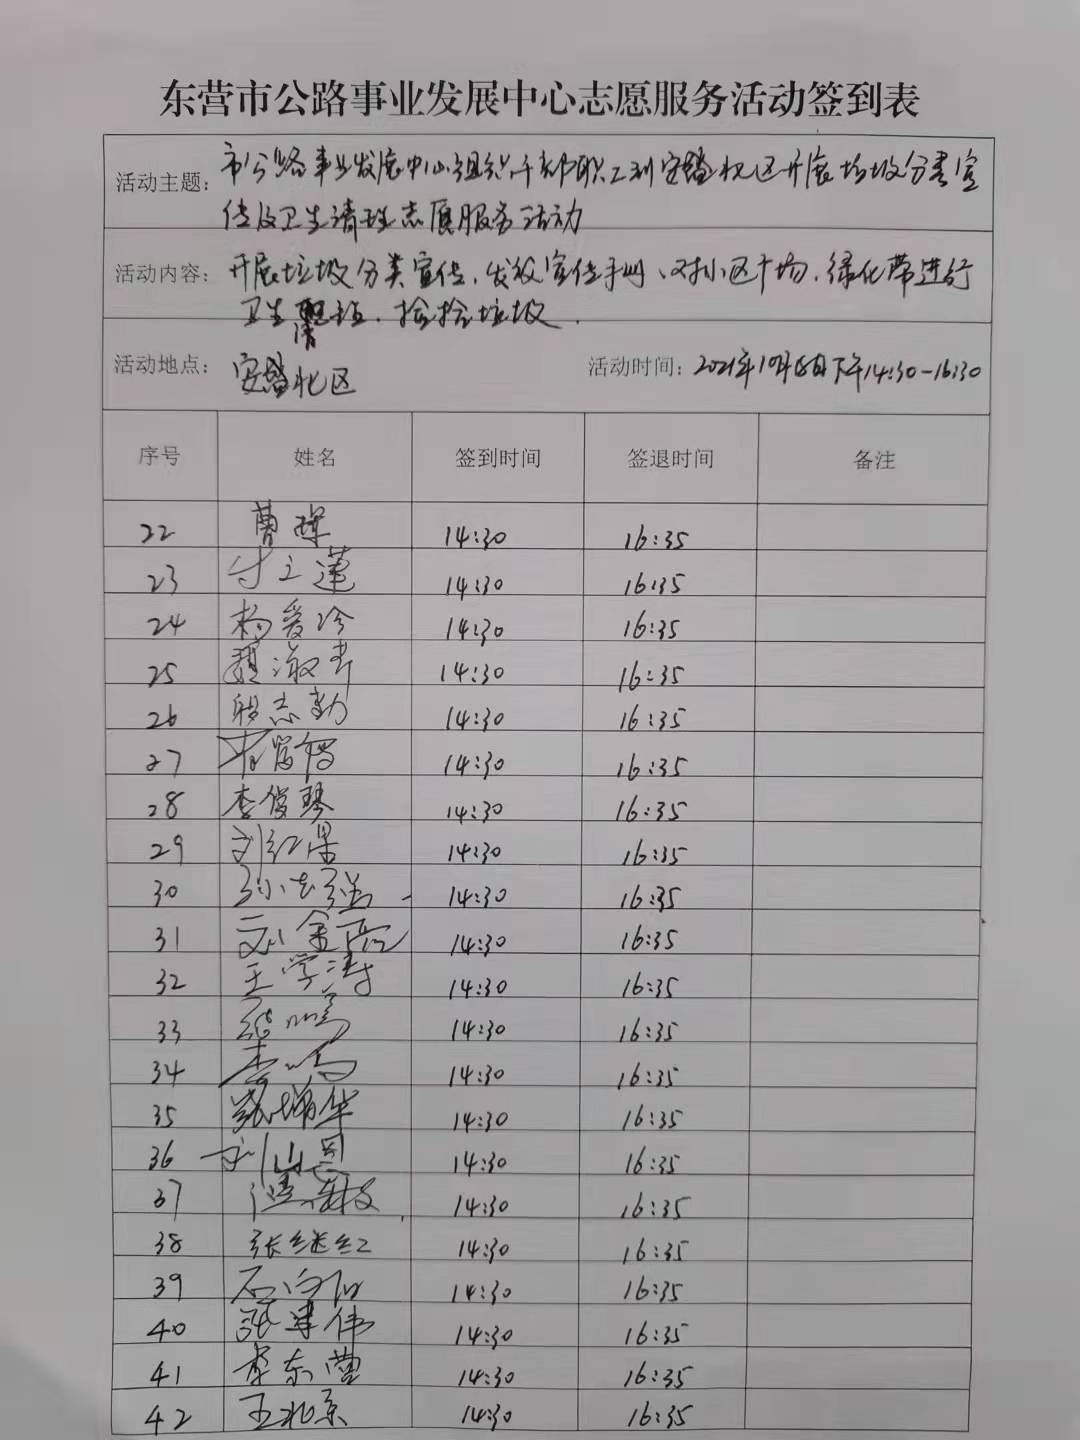 东营市公路事业发展中心志愿服务活动签到表
活动主题: 市公路事业发展中心组织干部职工到安盛北区开展垃圾分类宣
传及卫生清理志愿服务活动
活动内容: 开展垃圾分类宣传、发放宣传手册、对小区广场、绿化带进行
卫生清理、捡拾垃圾.
活动地点: 安盛北区 活动时间: 2021年10月 日下午14:30-16:30
序号 姓名 签到时间 签退时间 备注
22 曹 14:30 16:35
23 付立莲 14:30 16:35
24 杨爱珍 14:30 16:35
25 魏淑 14:30 16:35
26 志勤 14:30 16:35
27 14:30 16:35
28 李俊琴 14:30 16:35
29 刘红果 14:30 16:35
30 孙志强 14:30 16:35
31 刘金 14:30 16:35
32 王学涛 14:30 16:35
33 14:30 16:35
34 李鸣 14:30 16:35
35 华 14:30 16:35
36 刘山恩 14:30 16:35
37 14:30 16:35
38 张继红 14:30 16:35
39 石向阳 14:30 16:35
40 张建伟 14:30 16:35
41 李东营 14:30 16:35
42 王北京 14:30 16:35